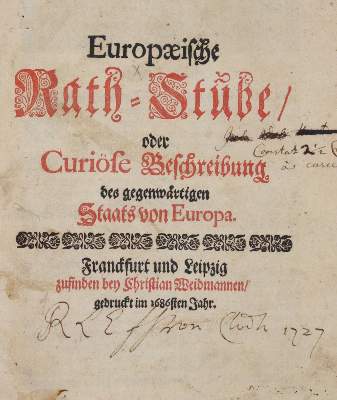 Europæische
Rath-Stube/
oder
Curiöse Beschreibung
des gegenwärtigen
Staats von Europa.
Franckfurt und Leipzig
zufinden bey Christian Weidmannen/
gedruckt im 1686sten Jahr.
1727